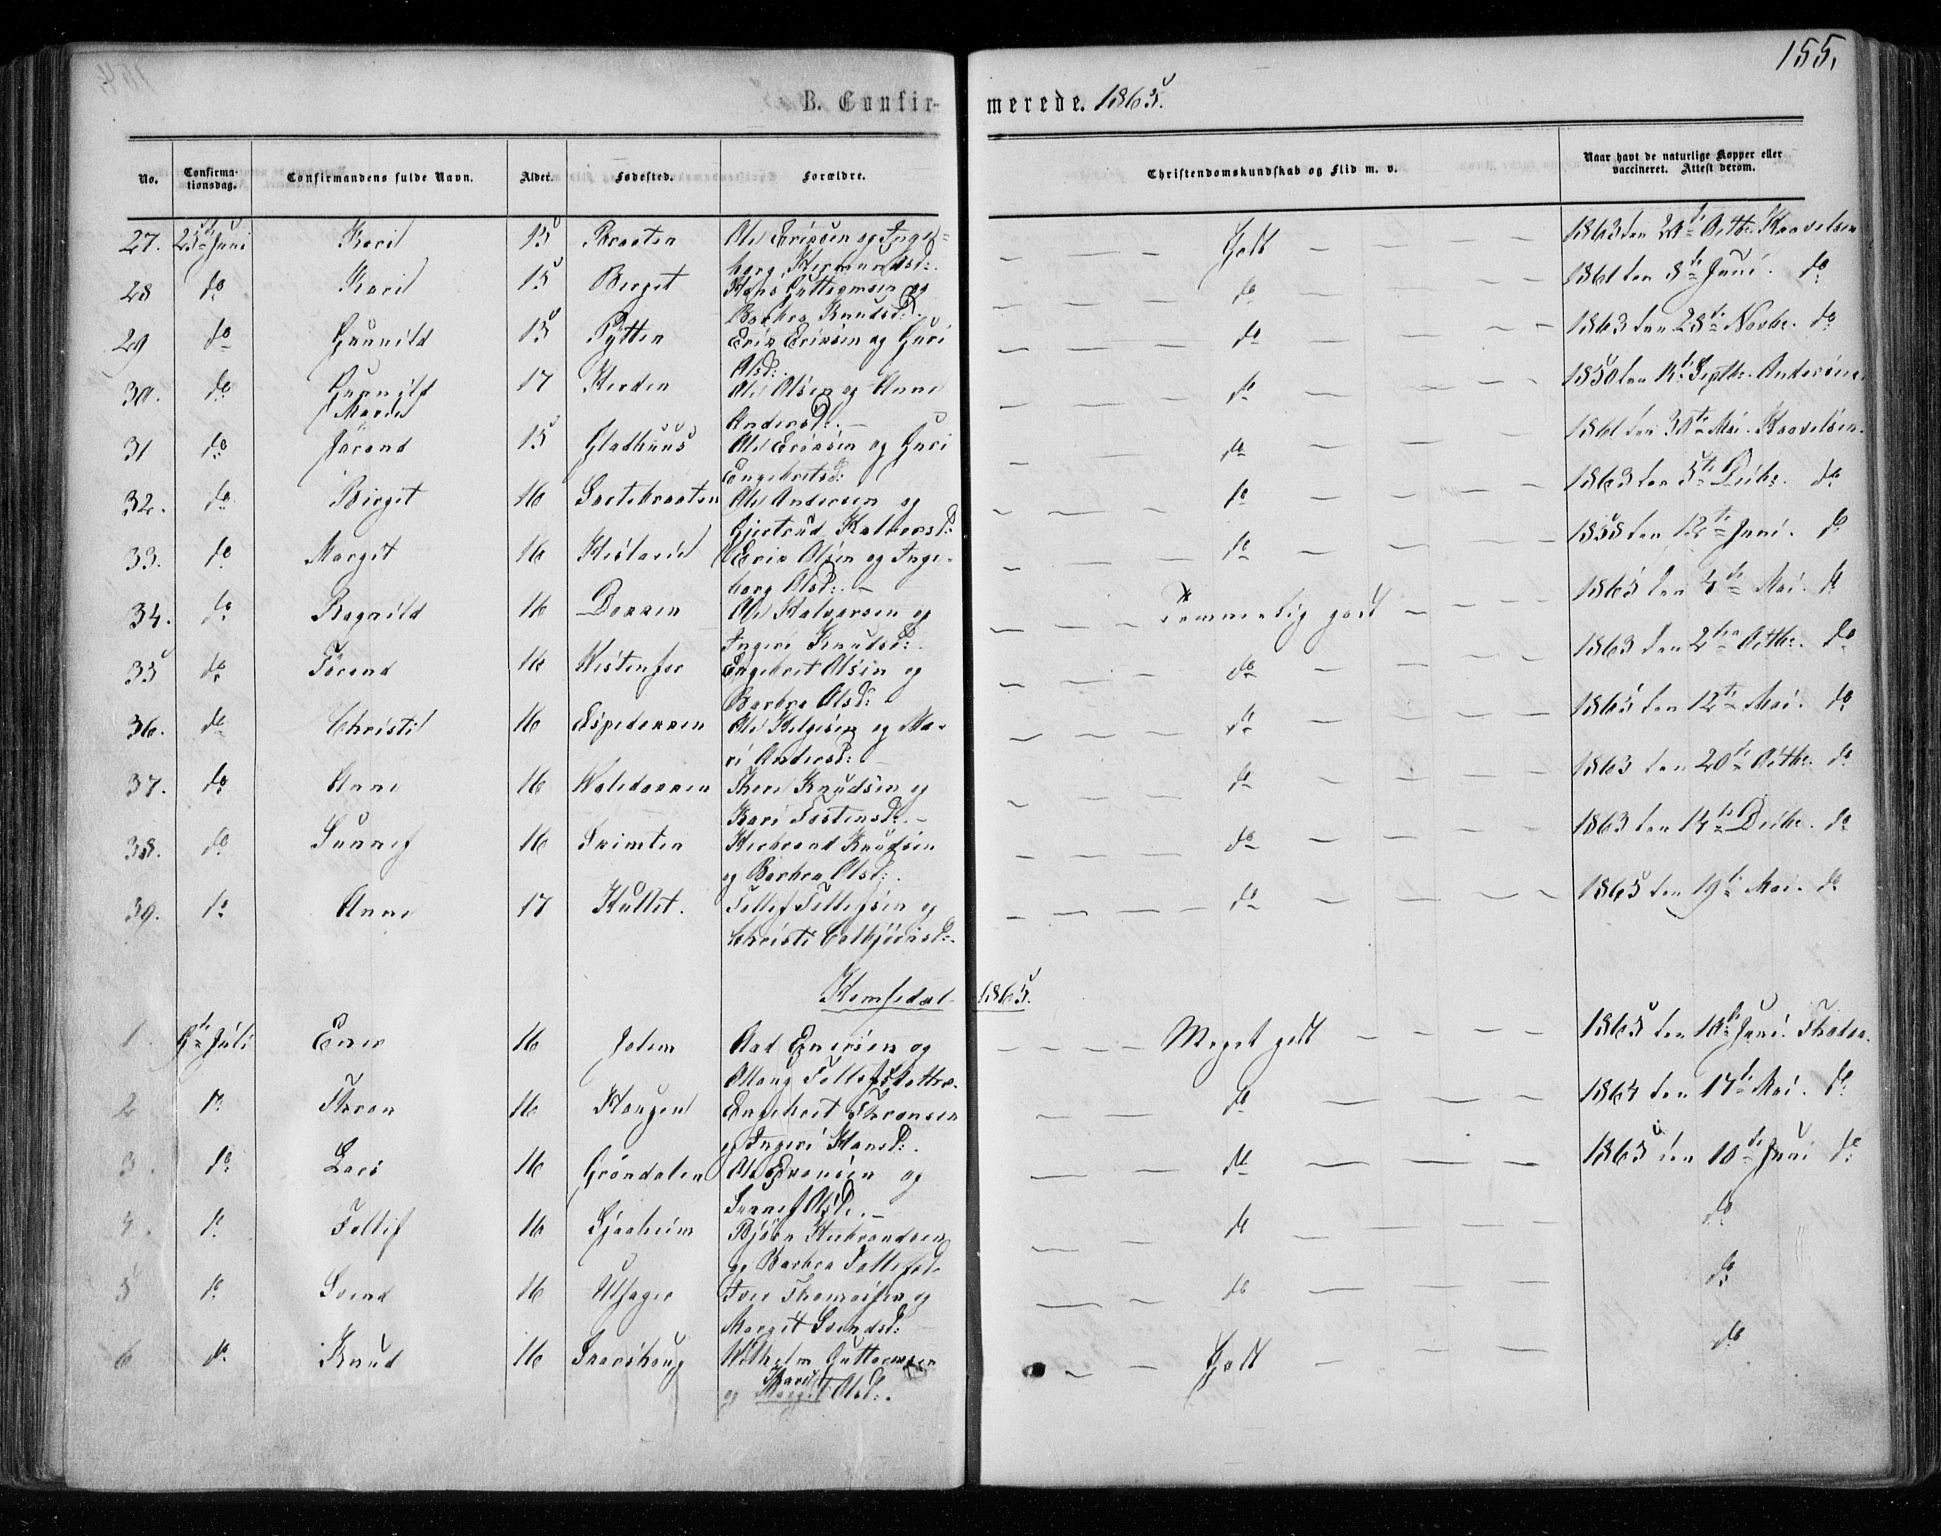 155.
B. Confirmerede. 1865.
No. Confirmationsdag. Confirmandens fulde Navn. Alder. Fødested. Forældre. Christendomskundskab og Flid m. v. Naar havt de naturlige Kopper eller vaccineret. Attest derom.
27. 25de Juni Kari 15 Braaten Ole Eriksen og Inge-
borg Hermundsd: Godt 1863 den Octbr. Kaavelsen
28 do Kari 15 Berget Hans Guttormsen og
Barbra Knudsd: do 1861 den 8de Juni. do
29 do Gunnild 15 Pytten Erik Eriksen og Guri
Olsd: do 1863 den 28de Novbr. do
30. do Gunnild
Marie 17 Ole Olsen og Anne
Andersd: do 1850 den Septbr. Andersen
31 do Jörand 15 Gladhuus Ole Eriksen og Guri
Engebretsd: do 1861 den 30te Mai. Kaavelsen.
32. do Birgit 16 Ole Andersen og
Gjertrud Halvorsd: do 1863 den 5te Decbr. do
33. do Margit 16 Erik Olsen og Inge-
borg Olsd: do 1858 den 12te Juni. do
34. do Ragnild 16 Dokken Ole Halvorsen og
Ingeri Knudsd: Temmelig godt 1865 den 4de Mai. do
35 do Jörand 16 Engebret Olsen og
Barbra Olsd: do 1863 den 2den Octbr. do
36. do Christi 16 Espedokken Ole Helgesen og Ka-
ri Andersd: do 1865 den 12te Mai. do
37. do Anne 16 Knudsen og
Kari Tostensd: do 1863 den 20de Octbr. do
38. do Sunnef 16 Skinten Herbrand Knudsen
og Barbra Olsd: do 1863 den 14de Decbr. do
39. do Anne 17 Tollef Tollefsen og
Christi do 1865 den 19de Mai. do
Hemsedal 1865.
1. Juli 16 Jolem Aad og
Tollefsdatter. Meget godt 1865 den Juni.
2 do Thron 16 Haugen Engebret Thronsen
og Ingeri Hansd: do 1864 den 17de Mai. do
3. do Lars 16 Gröndalen Ole og
Sunnef Olsd. do 1865 den 10de Juni do
4. do Tollef 16 Sjaaheim Björn Herbrandsen
og Barbra Tollefsd. do do
5 do Svend 16 Ulsager Iver Thomassen og
Margit Svendsd: do do
6 do Knud 16 Wilhelm Guttormsen
Kari
og Margit Olsd: Godt do